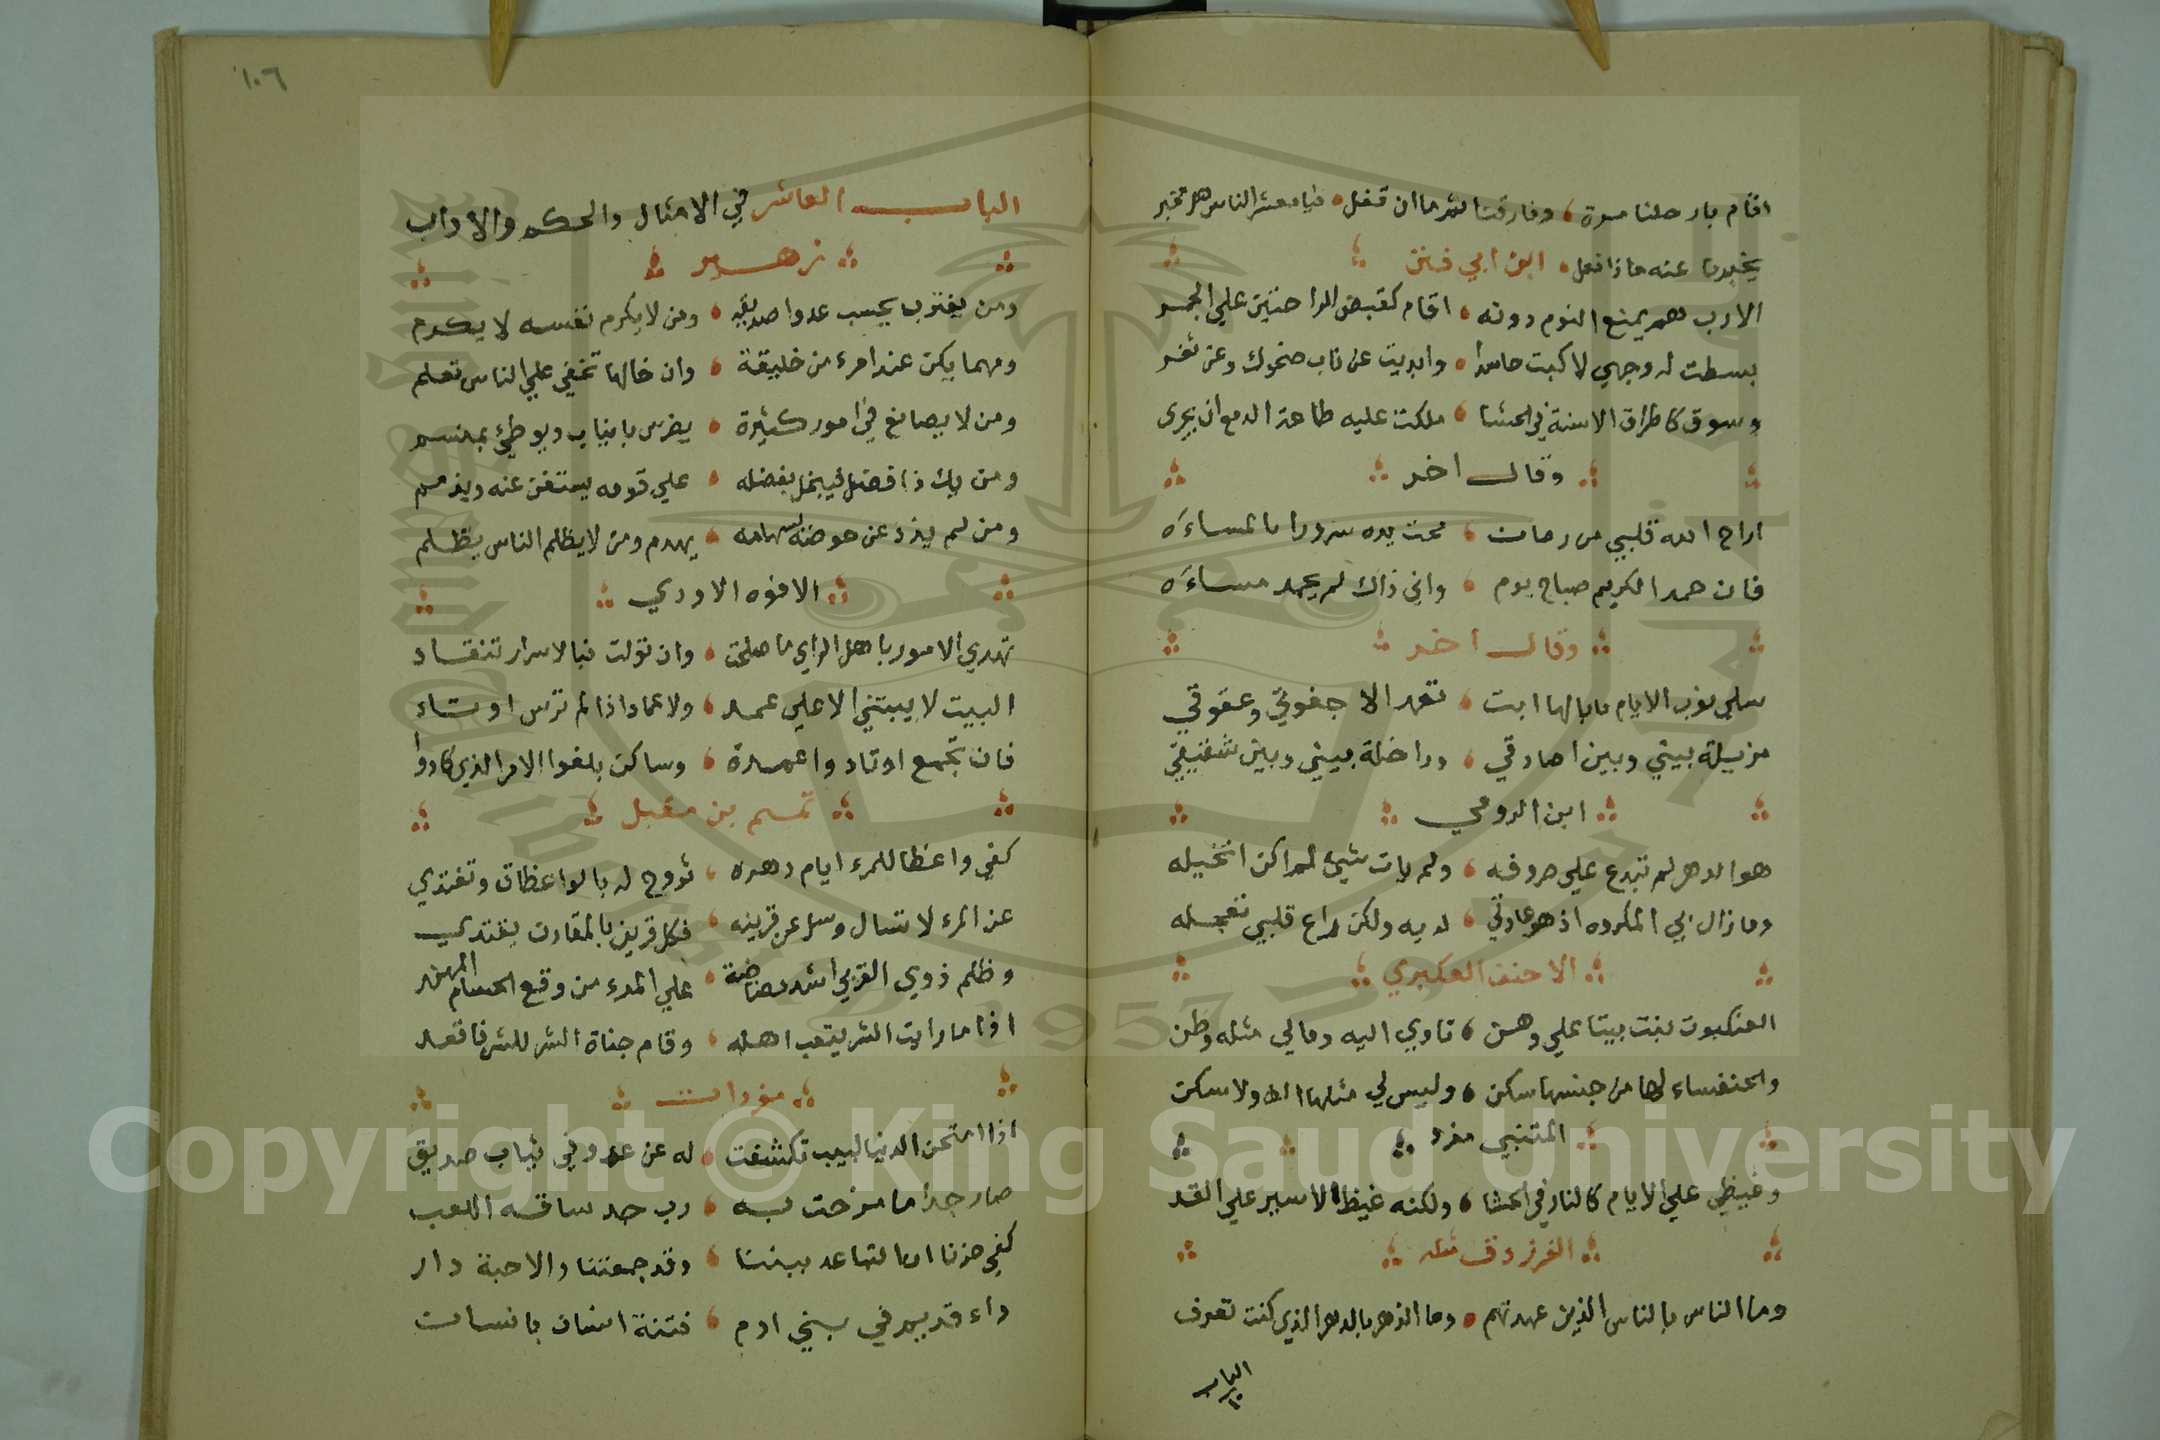 اقام بارحلنا مرة وفارقنا ثم ما ان قفل فيا معشر الناس هل مخبر
يخبرنا عنه ماذا فعل ابن ابي فنن
الارب هم يمنع النوم دونه اقام كقبض الراحتين علي الجمر
بسطت له وجهي لاكبت حاسدا وابديت عن ناب ضحوك وعن ثغر
وسوق كاطراف الاسنة في الحشا ملكت عليه طاعة الدمع ان يجري
وقال اخر
اراح الله قلبي من زمان محت يده سروري بالمساءَه
فان حمد الكريم صباح يوم واني ذاك لم يحمد مساءَه
وقال اخر
سلي نوب الايام ما بالها ابت تعمد الا جفوتي وعقوقي
مزيلة بيني وبين اصادقي وداخلة بيني وبين شقيقي
ابن الرومي
هو الدهر لم تبدع علي صروفه ولم يات شيئ لم اكن اتخيله
وما زال بي المكروه اذ هو عادتي لديه ولكن راع قلبي تعجله
الاحنف العكبري
العنكبوت بنت بيتا علي وهن تاوي اليه ومالي مثله وطن
والخنفساء لها من جنسها سكن وليس لي مثلها الف ولا سكن
المتنبي مفرد
وغيظي علي الايام كالنار في الحشا ولكنه غيظ الاسير علي القد
الفرزدق مثله
وما الناس بالناس الذين عهدتهم وما الدهر بالدهر الذي كنت تعرف
الباب
١٠٦
الباب العاشر في الامثال والحكم والاداب
زهير
ومن يغترب يحسب عدوا صديقه ومن لا يكرم نفسه لا يكرم
ومهما يكن عند امرء من خليقة وان خالها تخفي علي الناس تعلم
ومن لا يصانع في امور كثيرة يضرس بانياب ويوطئ بمنسم
ومن يك ذا فضل فيبخل بفضله علي قومه يستغن عنه ويذمم
ومن لم يذد عن حوضه بسهامه يهدم ومن لا يظلم الناس يظلم
الافوه الاودي
تهدي الامور باهل الراي ما صلحت وان تولت فبالاسرار تنقاد
البيت لا يبتني الا علي عمد ولا عماد اذا لم ترس اوتاد
فان تجمع اوتاد واعمدة وساكن بلغوا الامر الذي كادوا
تميم بن مقبل
كفي واعظا للمرء ايام دهره تروح له بالواعظات وتغتدي
عن المرء لا تسال وسل عن قرينه فكل قرين بالمقارن يقتدي
وظلم ذوي القربي اشد مضاضة علي المرء من وقع الحسام المهند
اذا ما رايت الشر يتعب اهله وقام جناة الشر للشر فاقعد
مفردات
اذا امتحن الدنيا لبيب تكشفت له عن عدو في ثياب صديق
صار جدا ما مزحت به رب جد ساقه اللعب
كفي حزنا ان التباعد بيننا وقد جمعتنا والاحبة دار
داء قديم في بني ادم فتنة انسان بانسان